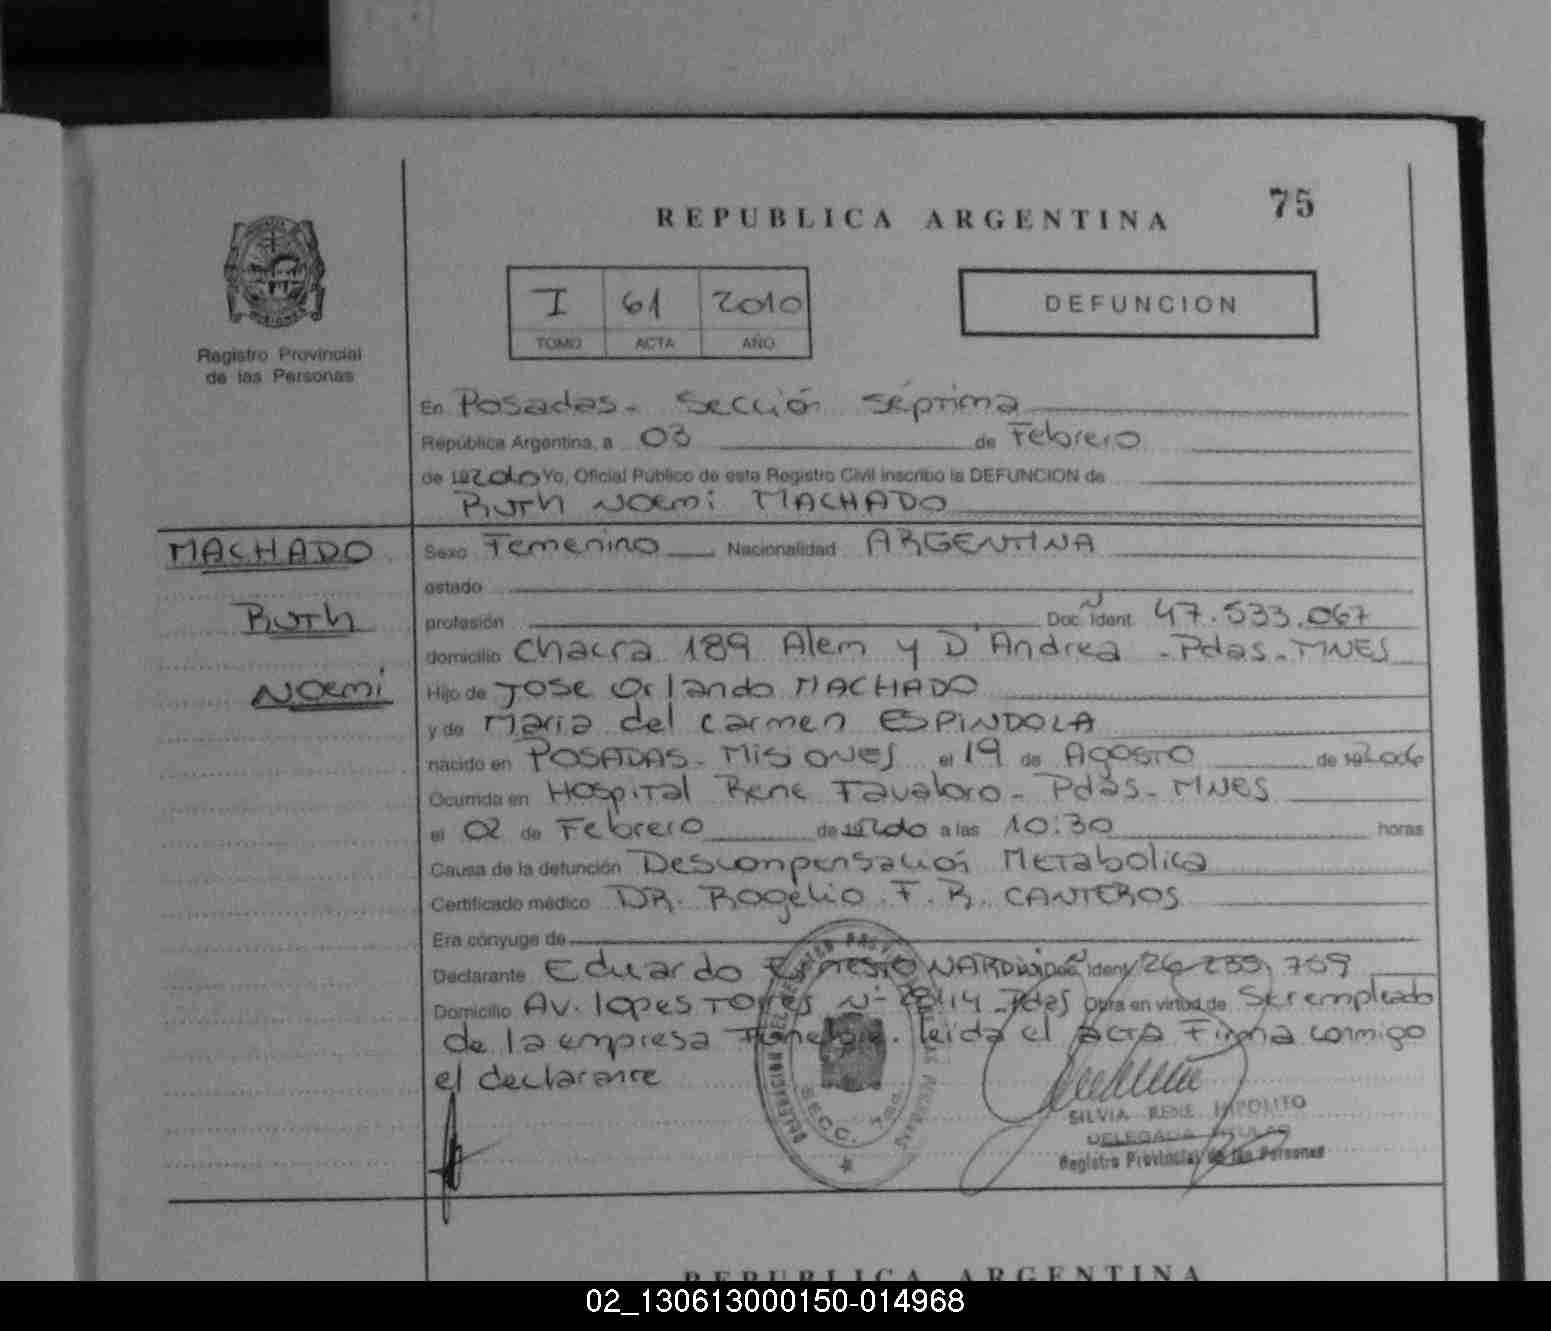 75
REPUBLICA ARGENTINA
I 61 2010
TOMO ACTA AÑO
DEFUNCION
Registro Provincial
de las Personas
En Posadas - Sección séptima
República Argentina, a 03 de Febrero
de 192010 Yo, Oficial Público de este Registro Civil inscribo la DEFUNCION de
Ruth Noemi MACHADO
MACHADO
Ruth
Noemi
Sexo Femenino Nacionalidad ARGENTINA
estado
profesión Doc. Ident. 47.533.067
domicilio Chacra 189 Alem y D'Andrea - Pdas - MNES
Hijo de Jose Orlando MACHADO
y de Maria del Carmen ESPINDOLA
nacido en POSADAS - Misiones el 19 de AGOSTO de 192006
Ocurrida en Hospital Rene Favaloro - Pdas - MNES
el 02 de Febrero de 192010 a las 10:30 horas
Causa de la defunción Descompensación Metabolica
Certificado médico DR. Rogelio F. R. CANTEROS
Era cónyuge de
Declarante Eduardo Ernesto Doc. Ident. 759
Domicilio Av. Lopes Torres Nº Pdas Obra en virtud de Ser empleado
de la empresa Funebre. leida el acta Firma conmigo
el declarante
SECC. 7
SILVIA RENE HIPOLITO
DELEGADA TITULAR
Registro Provincial de las Personas
REPUBLICA ARGENTINA
02_130613000150-014968